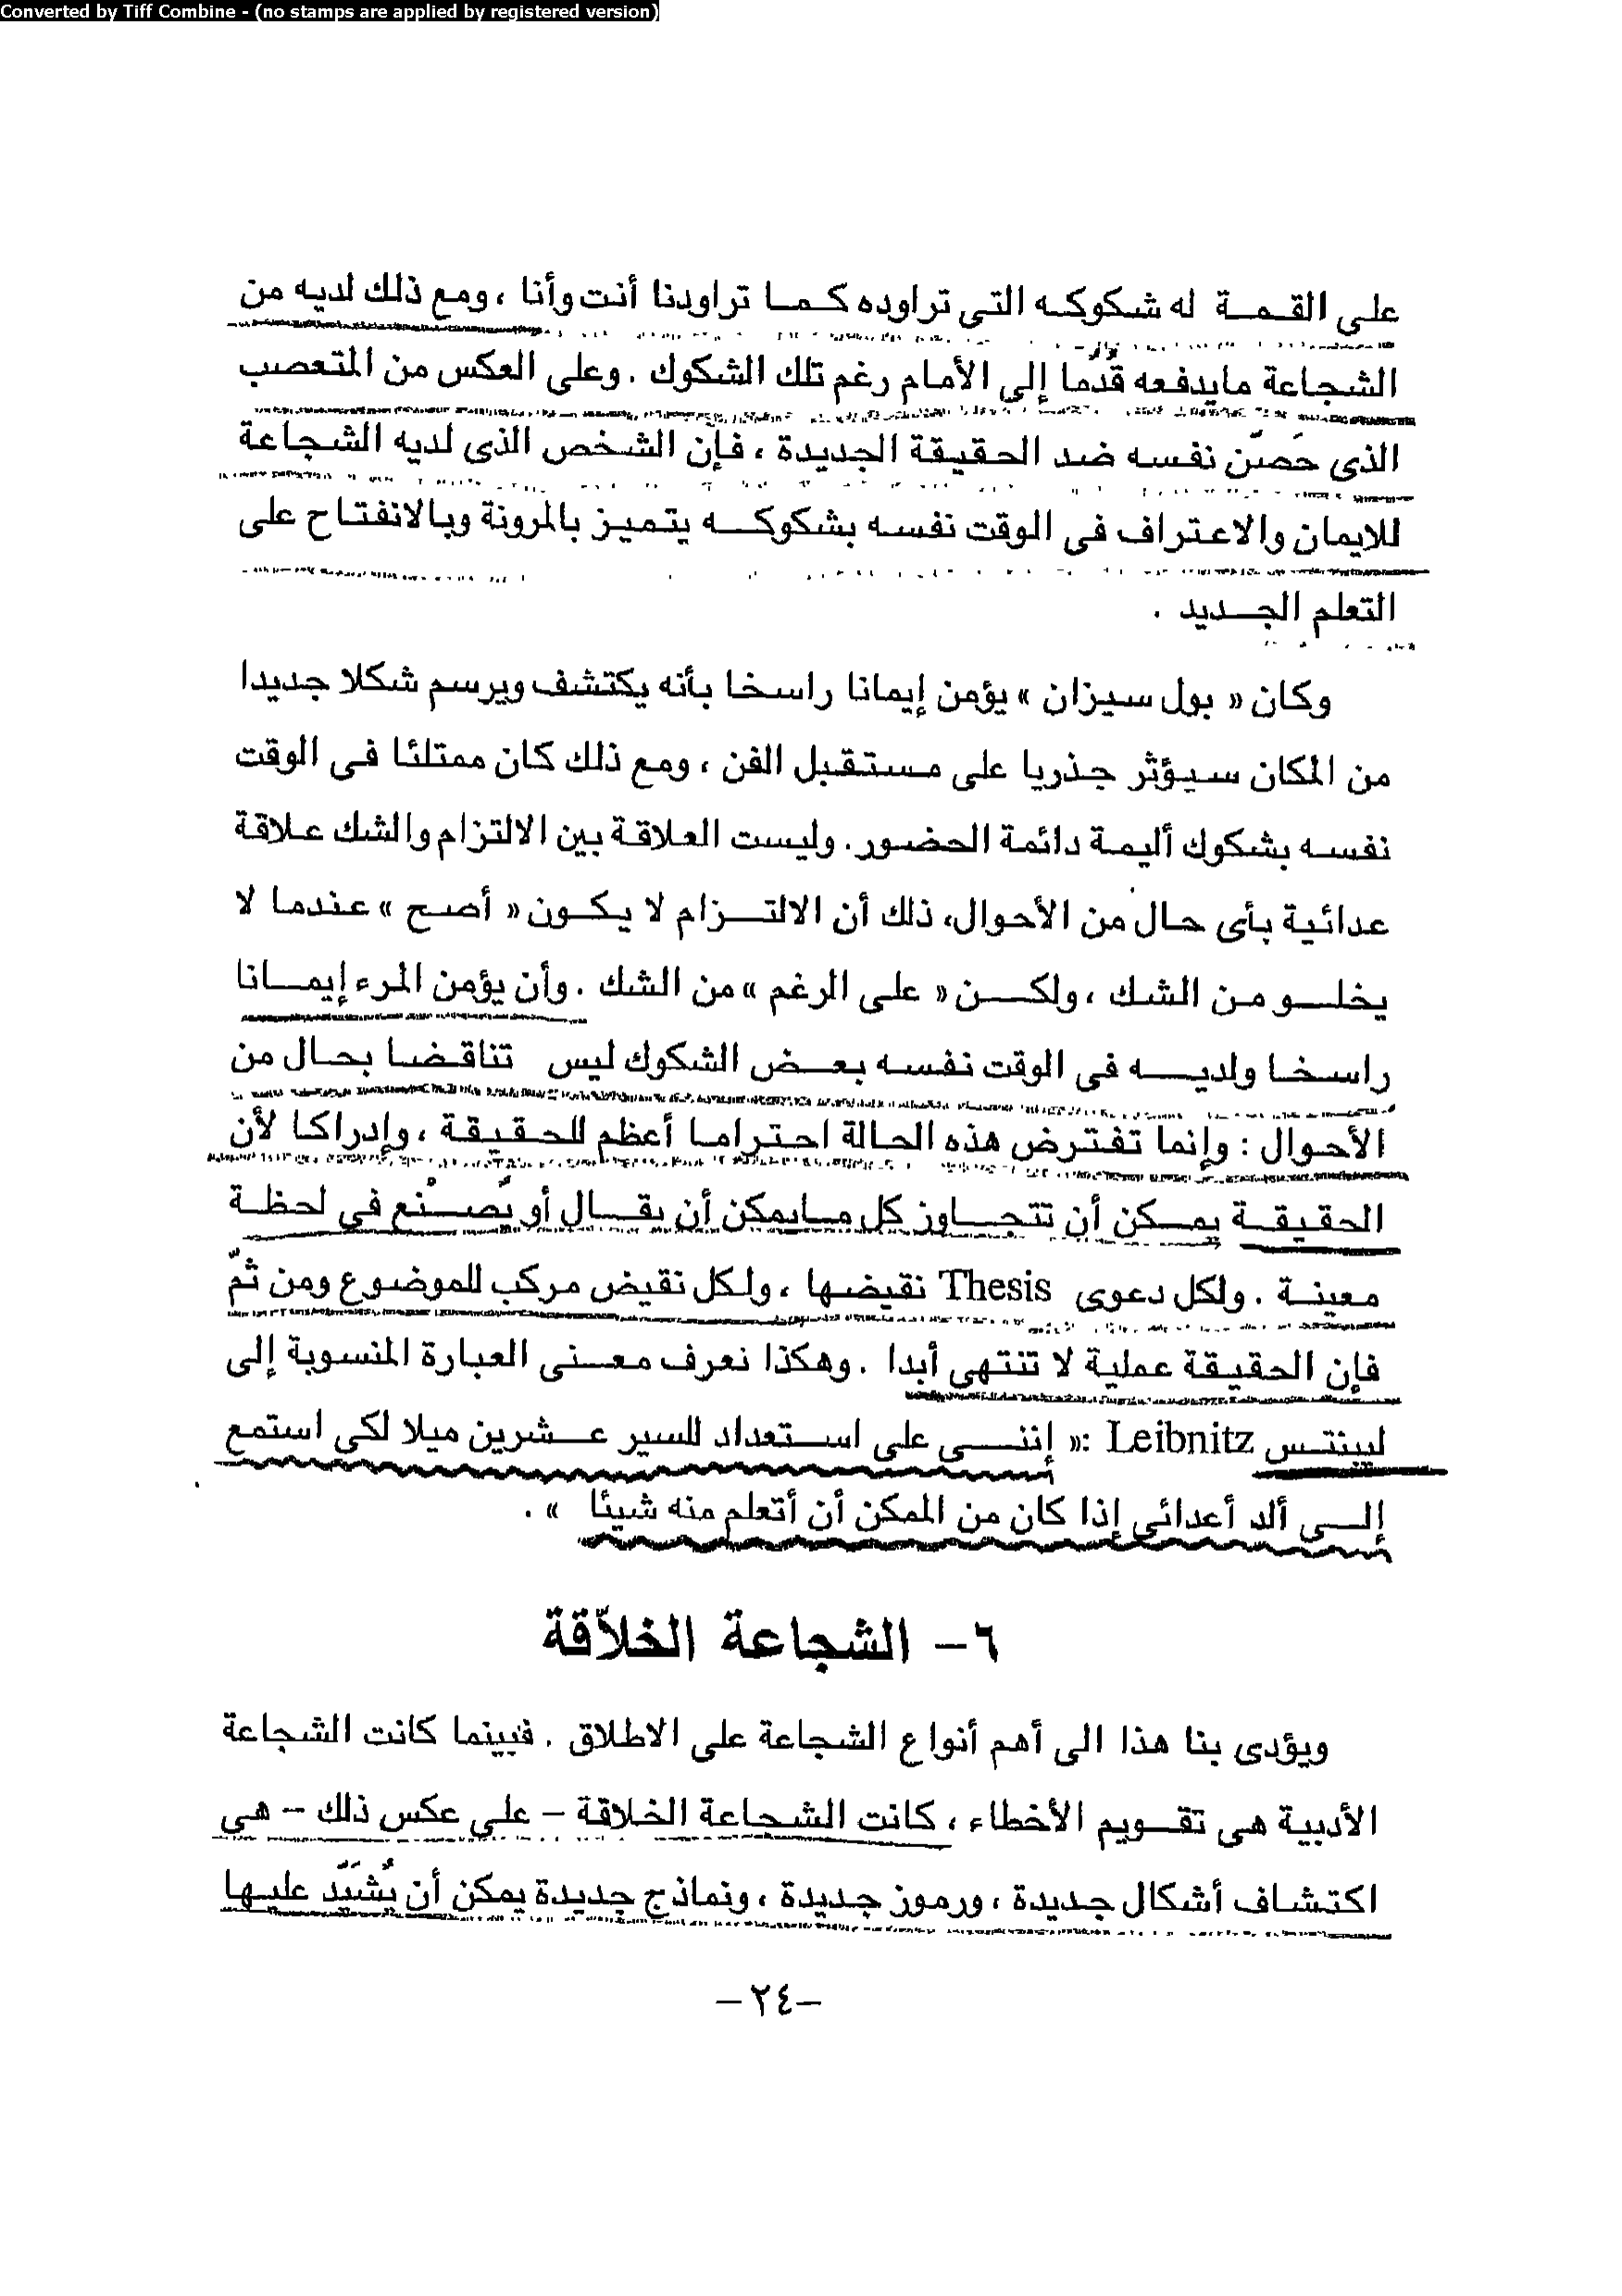 Converted by Tiff Combine - (no stamps are applied by registered version)
على القمة له شكوكه التى تراوده كما تراودنا أنت وأنا ، ومع ذلك لديه من
الشجاعة مايدفعه قُدُما إلى الأمام رغم تلك الشكوك . وعلى العكس من المتعصب
الذى حَصَّن نفسه ضد الحقيقة الجديدة ، فإن الشخص الذى لديه الشجاعة
للايمان والاعتراف فى الوقت نفسه بشكوكه يتميز بالمرونة وبالانفتاح على
التعلم الجديد .
وكان « بول سيزان » يؤمن إيمانا راسخا بأنه يكتشف ويرسم شكلا جديدا
من المكان سيؤثر جذريا على مستقبل الفن ، ومع ذلك كان ممتلئا فى الوقت
نفسه بشكوك أليمة دائمة الحضور. وليست العلاقة بين الالتزام والشك علاقة
عدائية بأى حال من الأحوال، ذلك أن الالتزام لا يكون « أصح » عندما لا
يخلو من الشك ، ولكن « على الرغم » من الشك . وأن يؤمن المرء إيمانا
راسخا ولديه فى الوقت نفسه بعض الشكوك ليس تناقضا بحال من
الأحوال : وإنما تفترض هذه الحالة احتراما أعظم للحقيقة ، وإدراكا لأن
الحقيقة يمكن أن تتجاوز كل مايمكن أن يقال أو يُصْنع فى لحظة
معينة . ولكل دعوى Thesis نقيضها ، ولكل نقيض مركب للموضوع ومن ثَمَّ
فإن الحقيقة عملية لا تنتهى أبدا . وهكذا نعرف معنى العبارة المنسوبة إلى
ليبنتس Leibnitz :« إننى على استعداد للسير عشرين ميلا لكى استمع
إلى ألد أعدائى إذا كان من الممكن أن أتعلم منه شيئا » .
٦ – الشجاعة الخلاّقة
ويؤدى بنا هذا الى أهم أنواع الشجاعة على الاطلاق . فبينما كانت الشجاعة
الأدبية هى تقويم الأخطاء ، كانت الشجاعة الخلاقة – على عكس ذلك – هى
اكتشاف أشكال جديدة ، ورموز جديدة ، ونماذج جديدة يمكن أن يُشَيَّد عليها
–٢٤–